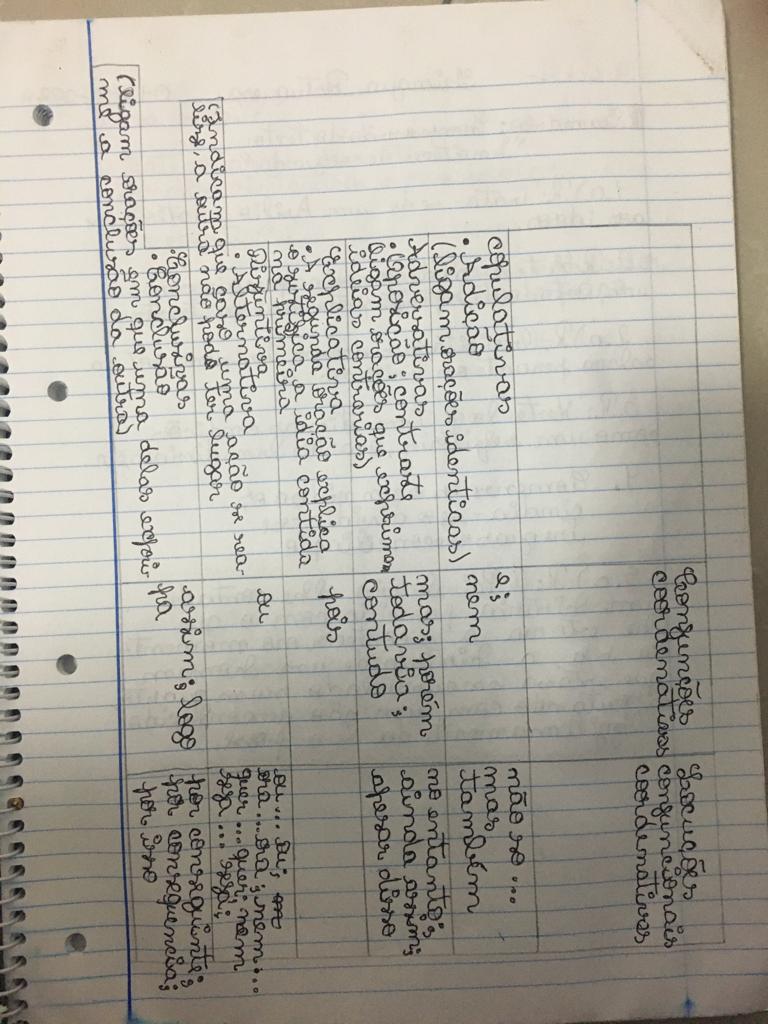 Conjunções
coordenativas
Locuções
conjuncionais
coordenativas
copulativas
• Adição
(ligam orações identicas)
e;
nem
não so ...
mas
também
Adversativas
• (oposição; contraste
ligam orações que exprimem
ideias contrarias)
mas; porém
todavia;
contudo
no entanto;
ainda assim;
apesar disso
Explicativa
• A segunda oração explica
o justifica a idia contida
na primeira
pois
Disjuntiva
• Alternativa
(Indicam que caso uma ação se rea-
lize, a outra não pode ter lugar
ou
ou ... ou;
ora ... ora; nem ...
quer ... quer; nem
seja ... seja;
Conclusivas
• Conclusão
(ligam orações em que uma delas expri-
me a conclusão da outra)
assim; logo
pa
por conseguinte;
por consequencia;
por isso